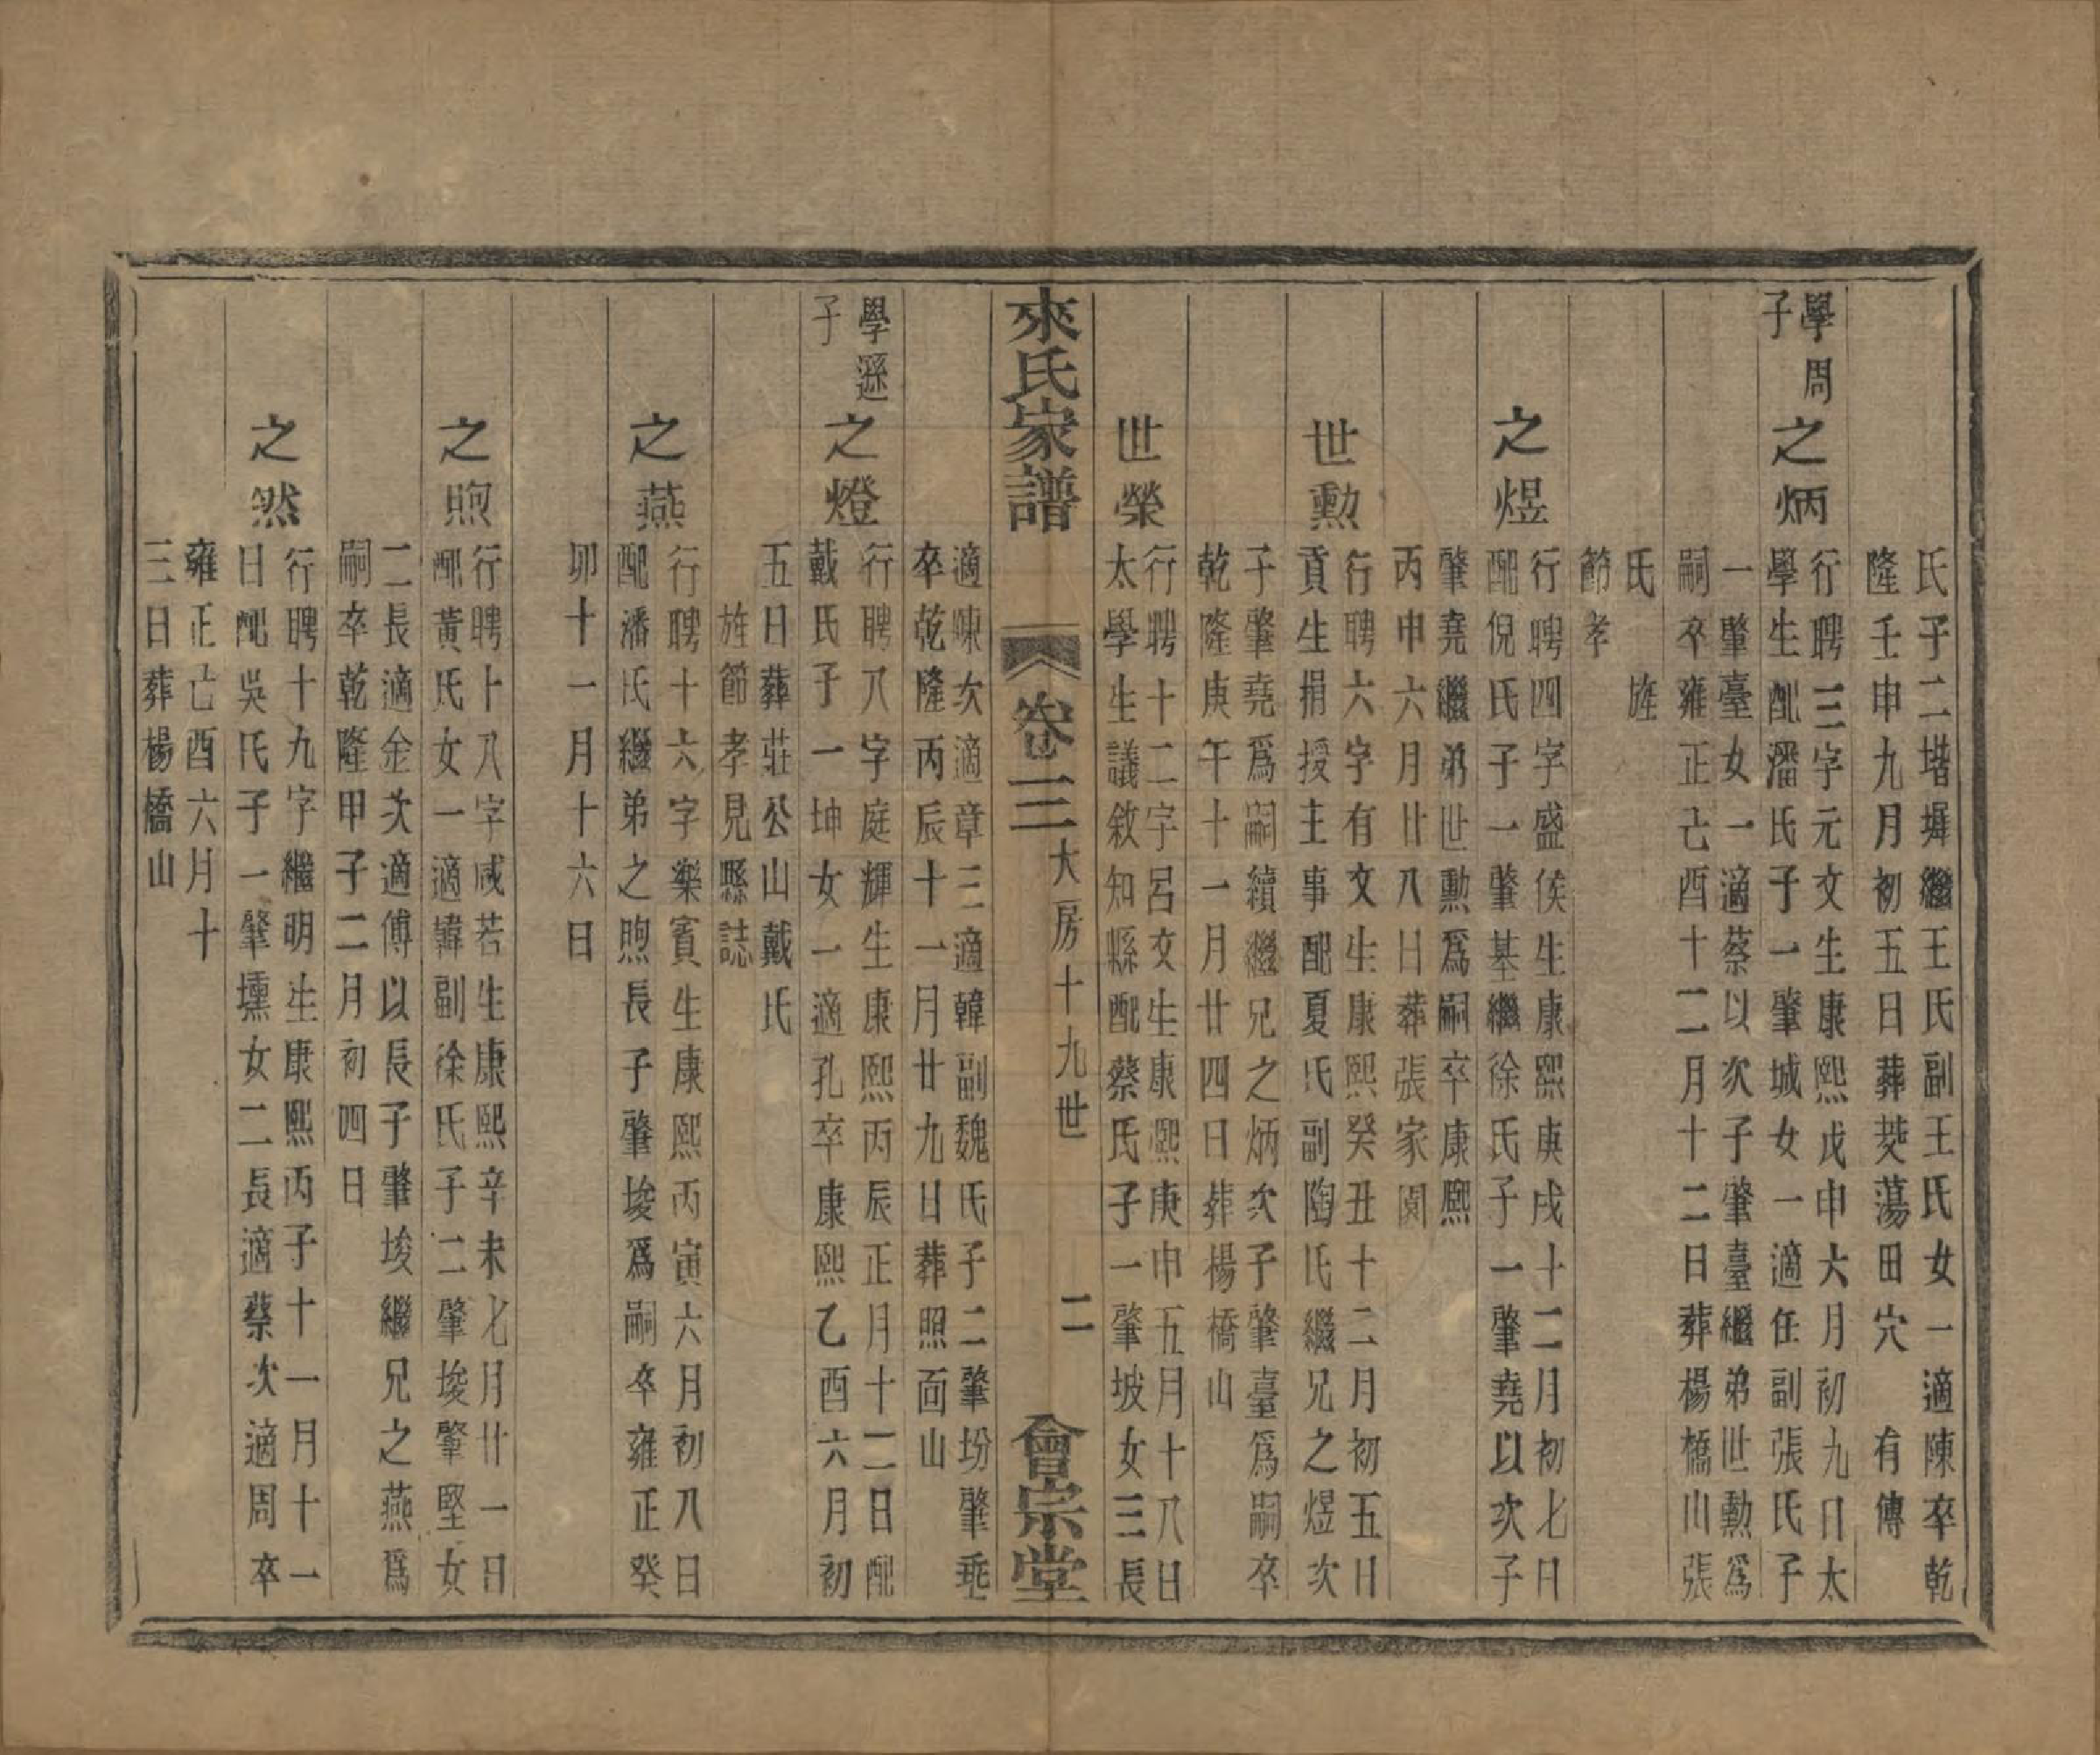 氏子二堦墀繼王氏副王氏女一適陳卒乾
隆壬申九月初五日葬茭蕩田穴　有傳
學周
子
之炳
行聘三字元文生康熙戊申六月初九日太
學生配潘氏子一肇城女一適任副張氏子
一肇臺女一適蔡以次子肇臺繼弟世勳爲
嗣卒雍正己酉十二月十二日葬楊橋山張
氏　旌
節孝
之煜
行聘四字盛侯生康熙庚戌十二月初七日
配倪氏子一肇基繼徐氏子一肇堯以次子
肇堯繼弟世勳爲嗣卒康熙
丙申六月廿八日葬張家園
世勳
行聘六字有文生康熙癸丑十二月初五日
貢生捐授主事配夏氏副陶氏繼兄之煜次
子肇堯爲嗣續繼兄之炳次子肇臺爲嗣卒
乾隆庚午十一月廿四日葬楊橋山
世榮
行聘十二字呂文生康熙庚申五月十八日
太學生議敘知縣配蔡氏子一肇坡女三長
來氏家譜
卷三
大房十九世
二
會宗堂
適陳次適章三適韓副魏氏子二肇坋肇埀
卒乾隆丙辰十一月廿九日葬照面山
學遜
子
之燈
行聘八字庭輝生康熙丙辰正月十二日配
戴氏子一坤女一適孔卒康熙乙酉六月初
五日葬莊公山戴氏
旌節孝見縣誌
之燕
行聘十六字樂賓生康熙丙寅六月初八日
配潘氏繼弟之煦長子肇埈爲嗣卒雍正癸
卯十一月十六日
之煦
行聘十八字咸若生康熙辛未七月廿一日
配黃氏女一適韓副徐氏子二肇埈肇堅女
二長適金次適傅以長子肇埈繼兄之燕爲
嗣卒乾隆甲子二月初四日
之然
行聘十九字繼明生康熙丙子十一月十一
日配吳氏子一肇壎女二長適蔡次適周卒
雍正己酉六月十
三日葬楊橋山